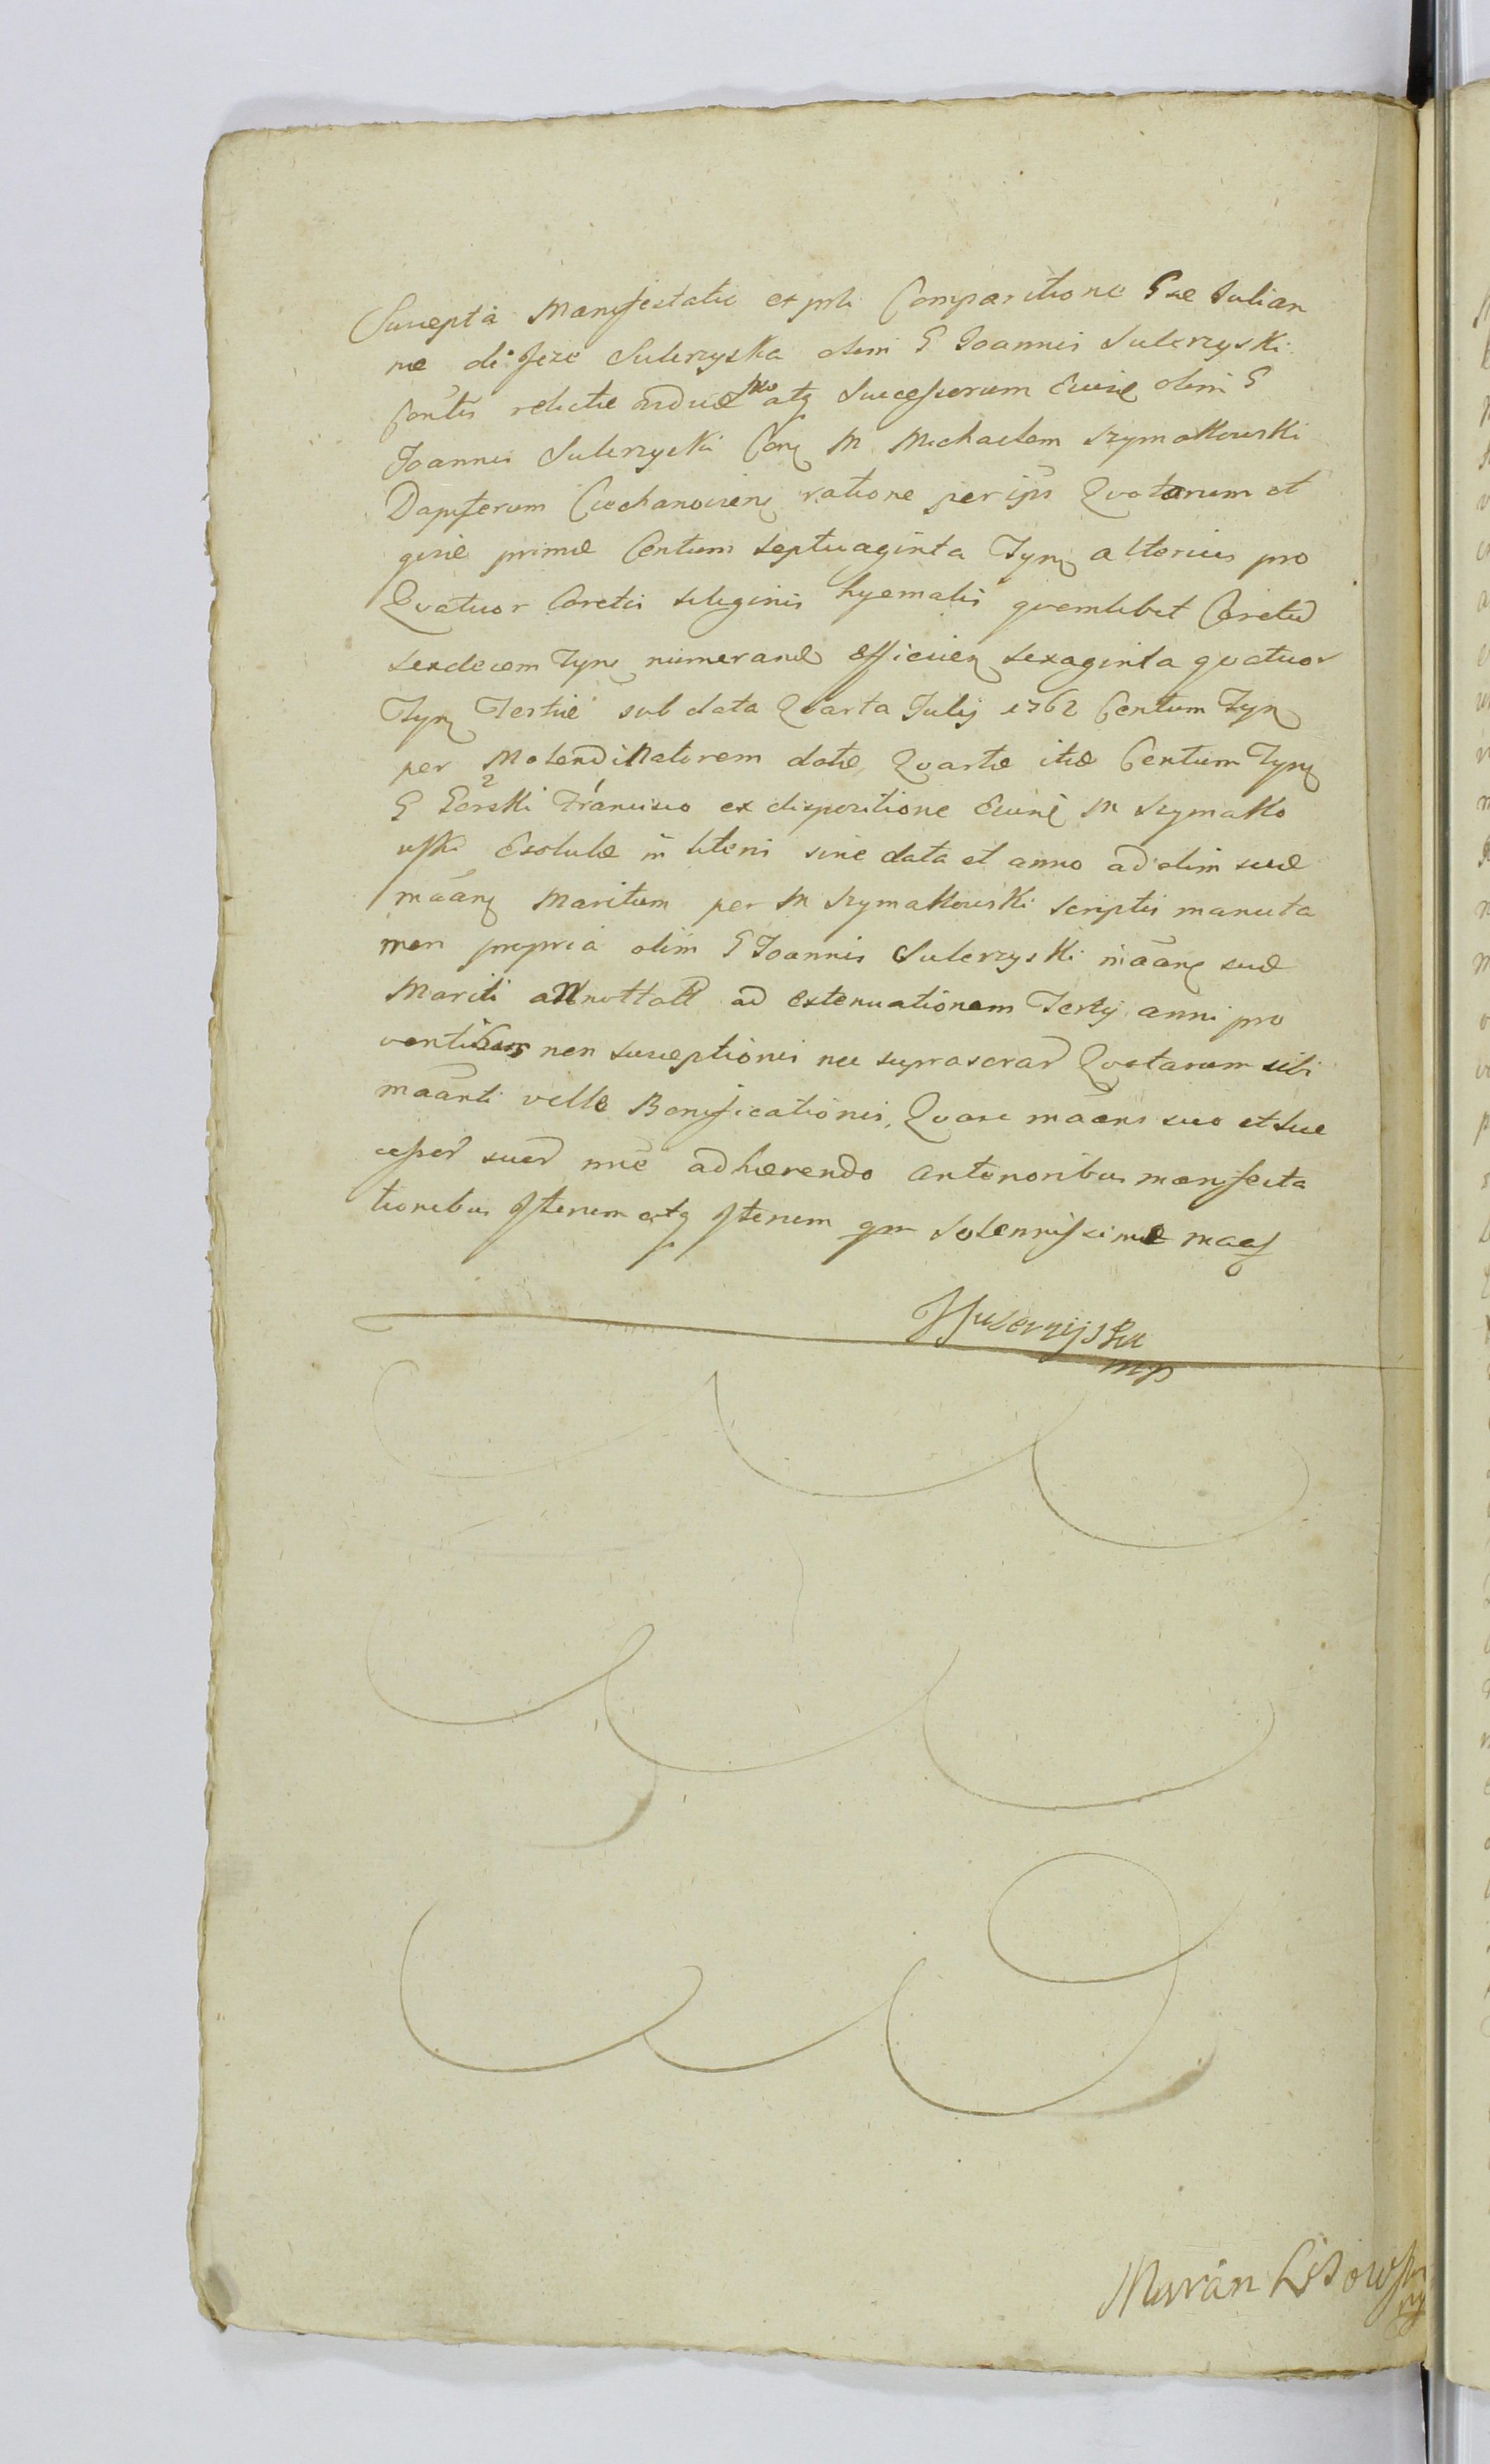 Suscepta Manifestatio ex psti Comparitione Gsæ Julian
næ de Jeze Sulerzyska olim G Joannis Sulerzyski
Contis relictæ viduæ suo atq Successorum olim G
Joannis Sulerzyski Con M Michaelem Szymakowski
Dapiferum Ciechanovien ratione per ips Quotarum et
quie primæ Centum Septuaginta Tyn alterius pro
Quatuor Coretis siliginis hyemalis quemlibet Coretū
sexdecem Tyn numerand Efficien sexaginta quatuor
Tyn Tertiæ sub data Quarta Julij 1762 Centum Tyn
per Molendinatorem datæ, Quartæ itid Centum Tyn
G Gorski Francisco ex dispositione M Szymako
wski Exolutæ in literis sine data et anno ad olim suæ
māan Maritum per M Szymakowski scriptis manu ta
men propria olim G Joannis Sulerzyski māan suæ
Mariti annottatt ad Extenuationem Tertij anni pro
ventibus non susceptionis nec suprascrar Quotarum sibi
māanti velle Bonificationis, Quare māans suo et Suc
cessor suor nnē adhærendo anterioribus manifesta
tionibus Iterum atq Iterum qm Solennissime maaf
JSulerzyska
mp
Maryan Lisowski